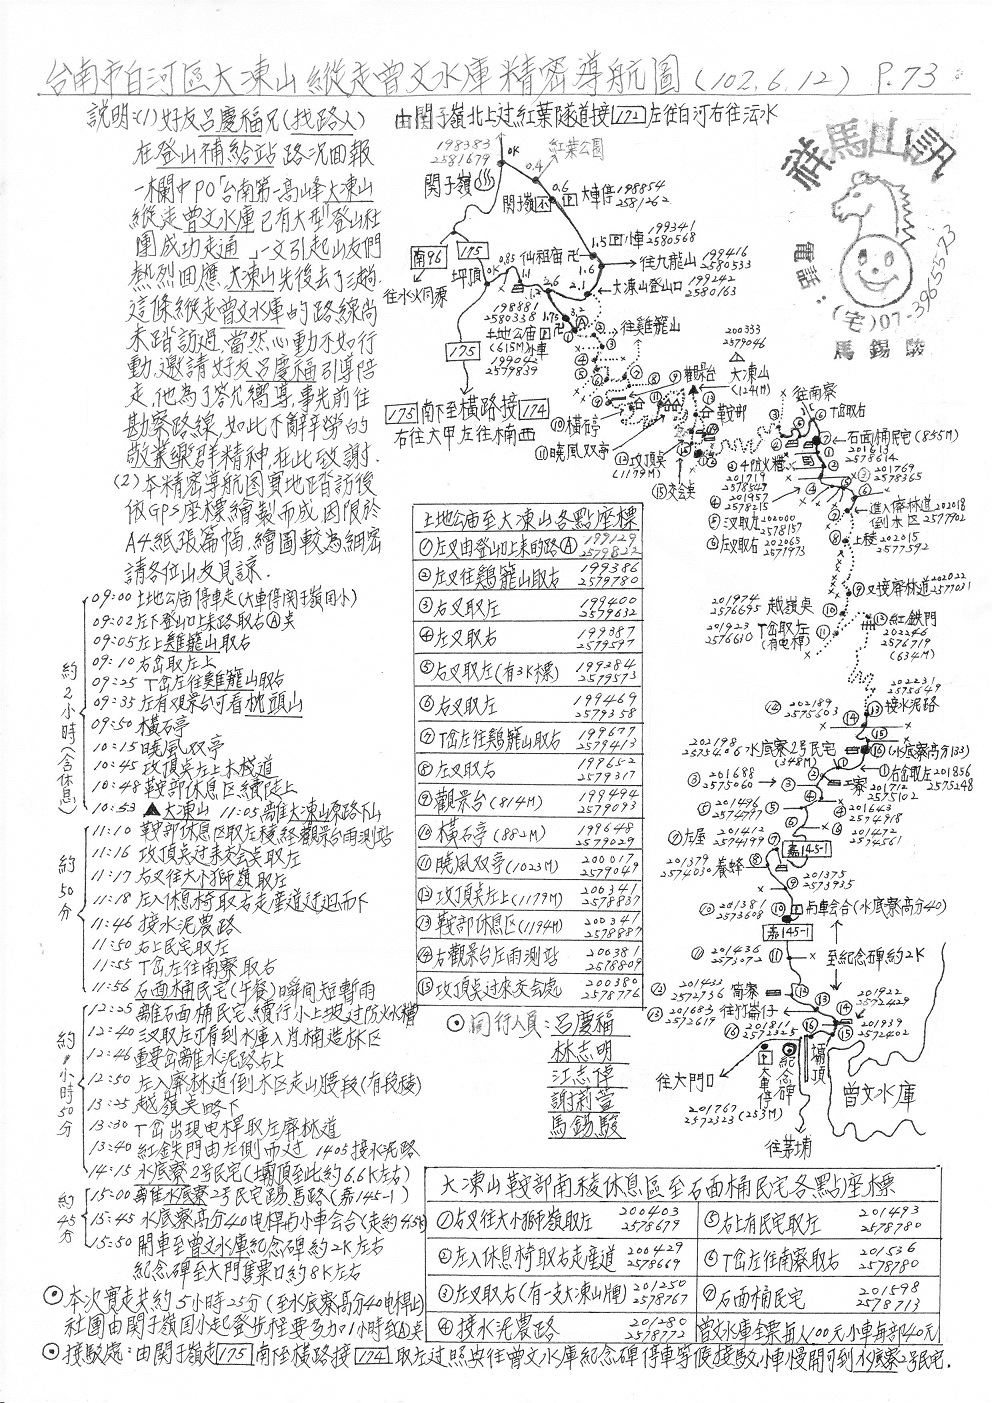 台南市白河區大凍山縱走曾文水庫精密導航圖(102.6.12) P.73
說明:(1)好友呂慶福兄(找路人)
在登山補給站路況回報
一欄中PO「台南第一高山峰大凍山
縱走曾文水庫已有大型登山社
團成功走通」一文引起山友們
熱烈回應大凍山先後去了3趟.
這條縱走曾文水庫的路線尚
未踏訪過,當然心動不如行
動,邀請好友呂慶福引導陪
走,他為了答允嚮導,事先前往
勘察路線,如此不辭辛勞的
敬業樂群精神,在此致謝.
(2)本精密導航圖實地踏訪後
依GPS座標繪製而成,因限於
A4紙張篇幅,繪圖較為細密
請各位山友見諒.
約2小時(含休息)
09:00 土地公庙停車走(大車停関子嶺国小)
09:02 左下登山口上來路取右Ⓐ点
09:05 左上雞籠山取右
09:10 右岔取左上
09:25 丁岔左往雞籠山取右
09:35 左有观景台可看枕頭山
09:50 橫石亭
10:15 曉風双亭
10:45 攻頂点左上木棧道
10:48 鞍部休息区續陡上
10:53 ▲大凍山 11:05離大凍山原路下山
約50分
11:10 鞍部休息区取左稜経觀景台雨測站
11:16 攻頂点过來交会点取左
11:17 右叉往大小獅嶺取左
11:18 左入休息椅取右走產道迂迴而下
11:46 接水泥農路
11:50 右上民宅取左
11:55 丁岔左往南寮取右
11:56 石面桶民宅(午餐)瞬间短暫雨
約1小時50分
12:25 離石面桶民宅續行小上坡过防火牆
12:40 3叉取左可看到水庫入肖楠造林区
12:46 重要岔離水泥路右上
12:50 左入廢林道倒木区走山腰段(有段稜)
13:25 越嶺点略下
13:30 丁岔出現电桿取左廢林道
13:40 紅鉄門由左側而过 1405接水泥路
14:15 水底寮2号民宅(壩頂至此約6.6K左右)
約45分
15:00 離水底寮2号民宅踢馬路(嘉145-1)
15:45 水底寮高分40电桿与小車会合(走約45分)
15:50 開車至曾文水庫紀念碑約2K左右
紀念碑至大門售票口約8K左右
⊙本次實走共約5小時25分(至水底寮高分40电桿止)
社團由関子嶺国小起登步程要多加1小時至Ⓐ点
⊙接駁處:由関子嶺走175南下至橫路接174取左过照興往曾文水庫紀念碑停車等候接駁小車慢開可到水底寮2号民宅.
由関子嶺北上过紅葉隧道接172左往白河右往沄水
198383
2581679
0K
紅葉公園
0.4
関子嶺♨
関子嶺国小
0.6
大車停
198854
2581262
199341
2580568
1.5
小車
南96
175
0K
0.85
仙祖庙卍
1.6
往九龍山
199416
2580533
199242
2580163
大凍山登山口
往水火同源
坪頂
1.1
1.2
2.1
2.6
198881
2580338
1.75
3.2
土地公庙
(615M)小車
199042
2579839
往雞籠山
175
175南下至橫路接174
右往大甲左往楠西
200333
2579046
大凍山
(1241M)
觀景台
鞍部
⑩橫石亭
⑪曉風双亭
⑫攻頂点
(1179M)
⑮交会点
往南寮
⑥丁岔取右
⑦石面桶民宅(855M)
201613
2578614
②201769
2578365
①防火牆
201719
2578549
④201957
2578215
⑤3叉取左
202000
2578157
⑥左叉取右
202065
2577973
進入廢林道
倒木区
202018
2577902
⑧上稜
202015
2577592
⑨叉接廢林道
202022
2577031
201974
2576695
越嶺点
⑩
201923
2576610
丁岔取左
(有电桿)
⑪
⑫紅鉄門
202246
2576719
(634M)
202231
2575649
⑬接水泥路
⑭202189
2575603
202198
2575406
水底寮2号民宅
(348M)
⑯(水底寮高分133)
①右岔取左
201856
2575248
③201688
2575060
工寮
201712
2575102
201643
2574918
⑤201496
2574797
⑥201472
2574561
⑦左屋
201412
2574199
嘉145-1
201379
2574030
養蜂
⑨201375
2573935
⑩201381
2573608
与車会合(水底寮高分40)
嘉145-1
⑪201436
2573072
至紀念碑約2K
⑫201422
2572736
筍寮
⑬201683
2572619
往竹崙仔
⑭201922
2572429
201939
2572402
⑯201811
2572325
往大門口
大車停
紀念碑
壩頂
曾文水庫
201767
2572323
(253M)
往茅埔
祥馬山訊
電話:
(宅)07-3965573
馬錫駿
土地公庙至大凍山各點座標
①左叉由登山口上來的路Ⓐ 199129 2579822
②左叉往鷄籠山取右 199386 2579780
③右叉取左 199400 2579632
④左叉取右 199387 2579597
⑤右叉取左(有3K標) 199384 2579573
⑥右叉取左 199469 2579358
⑦丁岔左往鷄籠山取右 199677 2579413
⑧左叉取右 199652 2579317
⑨觀景台(814M) 199494 2579093
⑩橫石亭(882M) 199648 2579029
⑪曉風双亭(1023M) 200017 2579049
⑫攻頂点左上(1179M) 200341 2578837
⑬鞍部休息区(1194M) 200341 2578887
⑭右觀景台左雨測站 200381 2578809
⑮攻頂点过來交会處 200380 2578776
⊙同行人員:呂慶福
林志明
江志偉
謝莉萱
馬錫駿
大凍山鞍部南稜休息區至石面桶民宅各點座標
①右叉往大小獅嶺取左 200403 2578679
⑤右上有民宅取左 201493 2578780
②左入休息椅取右走產道 200429 2578669
⑥丁岔左往南寮取右 201536 2578780
③左叉取右(有一支大凍山牌) 201250 2578767
⑦石面桶民宅 201598 2578713
④接水泥農路 201280 2578772
曾文水庫全票每人100元小車每部40元